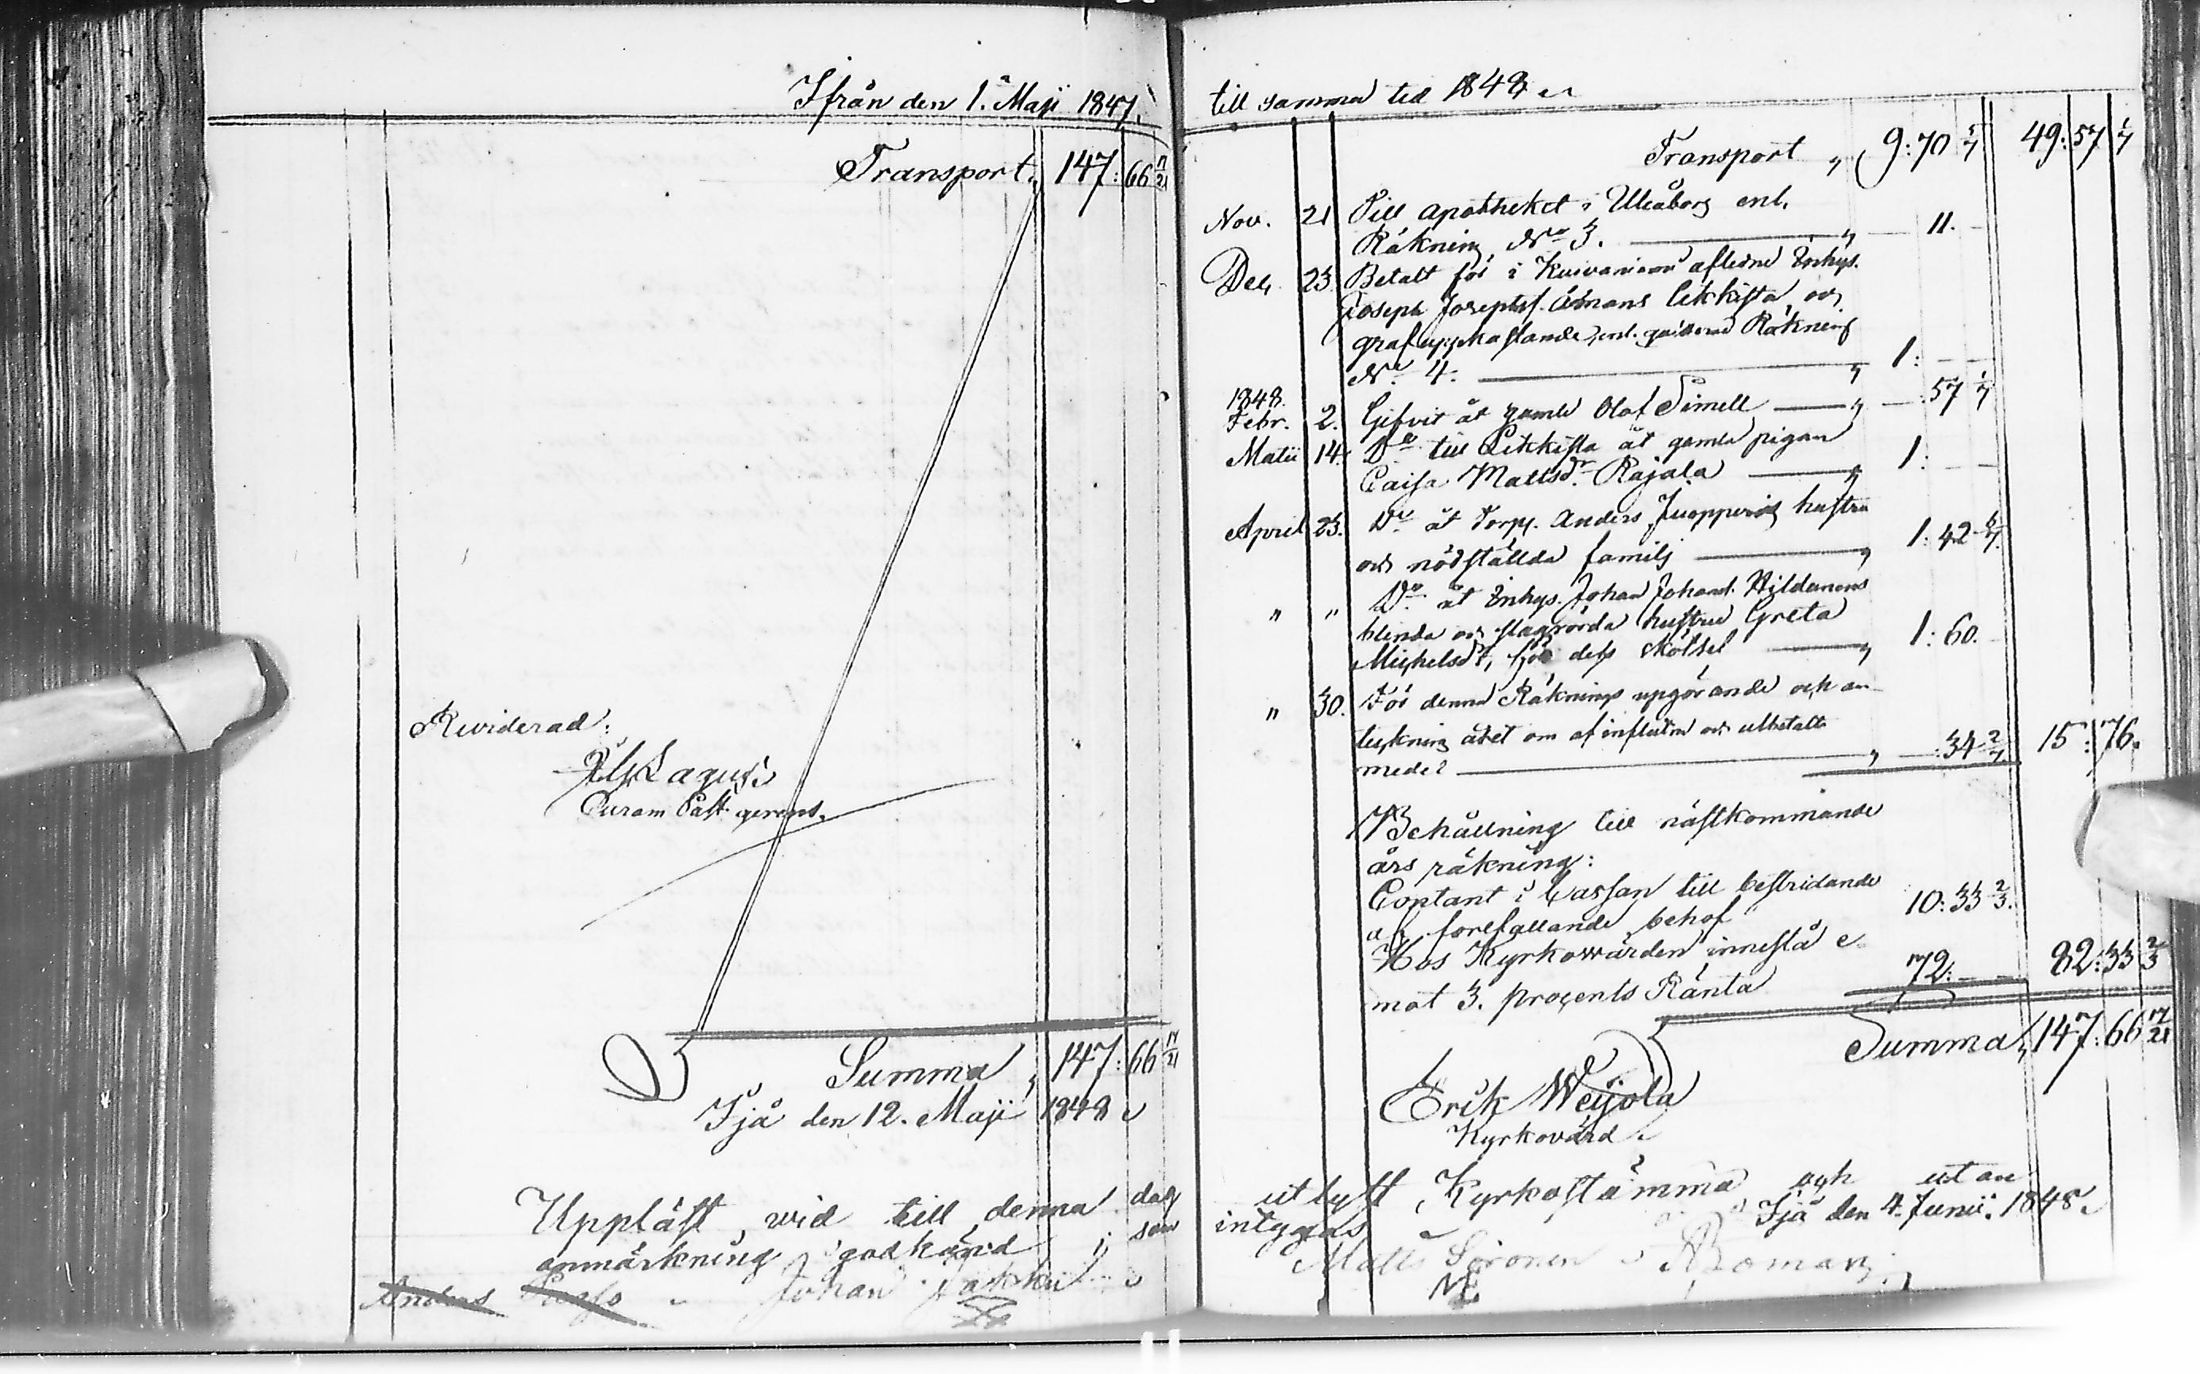 Ifrån den 1. Maji 1847.
Transport „ 147: 66 17/21
Reviderad:
Lagus
Curam Past. gerens.
Summa „ 147: 66 17/21
Ijå den 12. Maji 1848
Uppläst wid till denna dag
anmärkning godkänd, som
Anders Johan Jakku
till samma tid 1848
Transport „ 9: 70 5/7 49: 57 1/7
Nov. 21 Till Apotheket i Uleåborg enl.
Räkning No 3. „ — 11. —
Dec. 23 Betalt för i Kuivaniemi aflidne Inhys.
Joseph Josephss. Likkista och
graf enl. qvitterad Räkning
No 4. „ 1: —
1848.
Febr. 2. Gifvit åt gamle Olof Simell „ — 57 1/7
Martii 14. Do till Likkista åt gamla pigan
Caisa Mattsdr Rajala „ 1: —
April 23. Do åt Torp. Anders Juopperis hustru
och nödställda familj „ 1: 42 6/7
„ „ Do åt Inhys. Johan Johanss. Hildanens
blinda och slagrörda hustru Greta
Michelsdr, för dess skötsel „ 1: 60.
„ 30. För denna Räknings upgörande och an-
tekning året om af influtne och utbetalte
medel „ — 34 2/7 15: 76.
Behållning till nästkommande
års räkning:
Contant i Cassan till bestridande
af förefallande behof 10: 33 2/3.
Hos Kyrkowärden innestå e
mot 3. procents Ränta 72: — 82: 33 2/3
Summa „ 147: 66 17/21
Erik Weijola
Kyrkovärd.
utlyst Kyrkostämma och utan
intygas Ijå den 4. Junii 1848.
Matts Sironen Boman